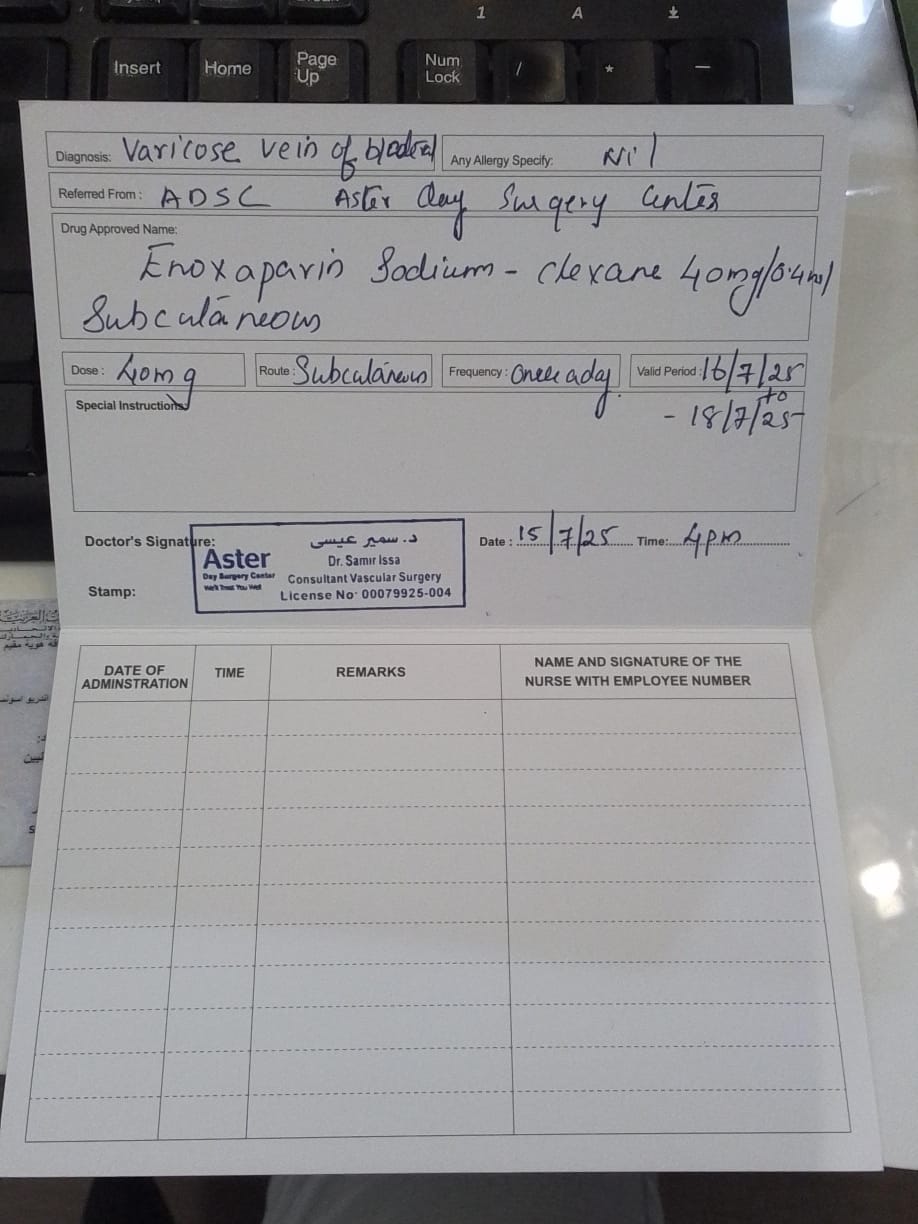 1 A
Insert Home Page Up Num Lock / * -
Diagnosis: Varicose vein of bilateral Any Allergy Specify: Nil
Referred From: ADSC Aster Day Surgery Center
Drug Approved Name:
Enoxaparin Sodium - Clexane 40mg/0.4ml
Subcutaneous
Dose: 40mg Route: Subcutaneous Frequency: Once a day Valid Period: 16/7/25
to
Special Instructions: - 18/7/25
Doctor's Signature: Date: 15/7/25 Time: 4pm
Stamp:
د. سمير عيسى
Aster Dr. Samir Issa
Day Surgery Center Consultant Vascular Surgery
We'll Treat You Well License No: 00079925-004
DATE OF ADMINSTRATION TIME REMARKS NAME AND SIGNATURE OF THE NURSE WITH EMPLOYEE NUMBER